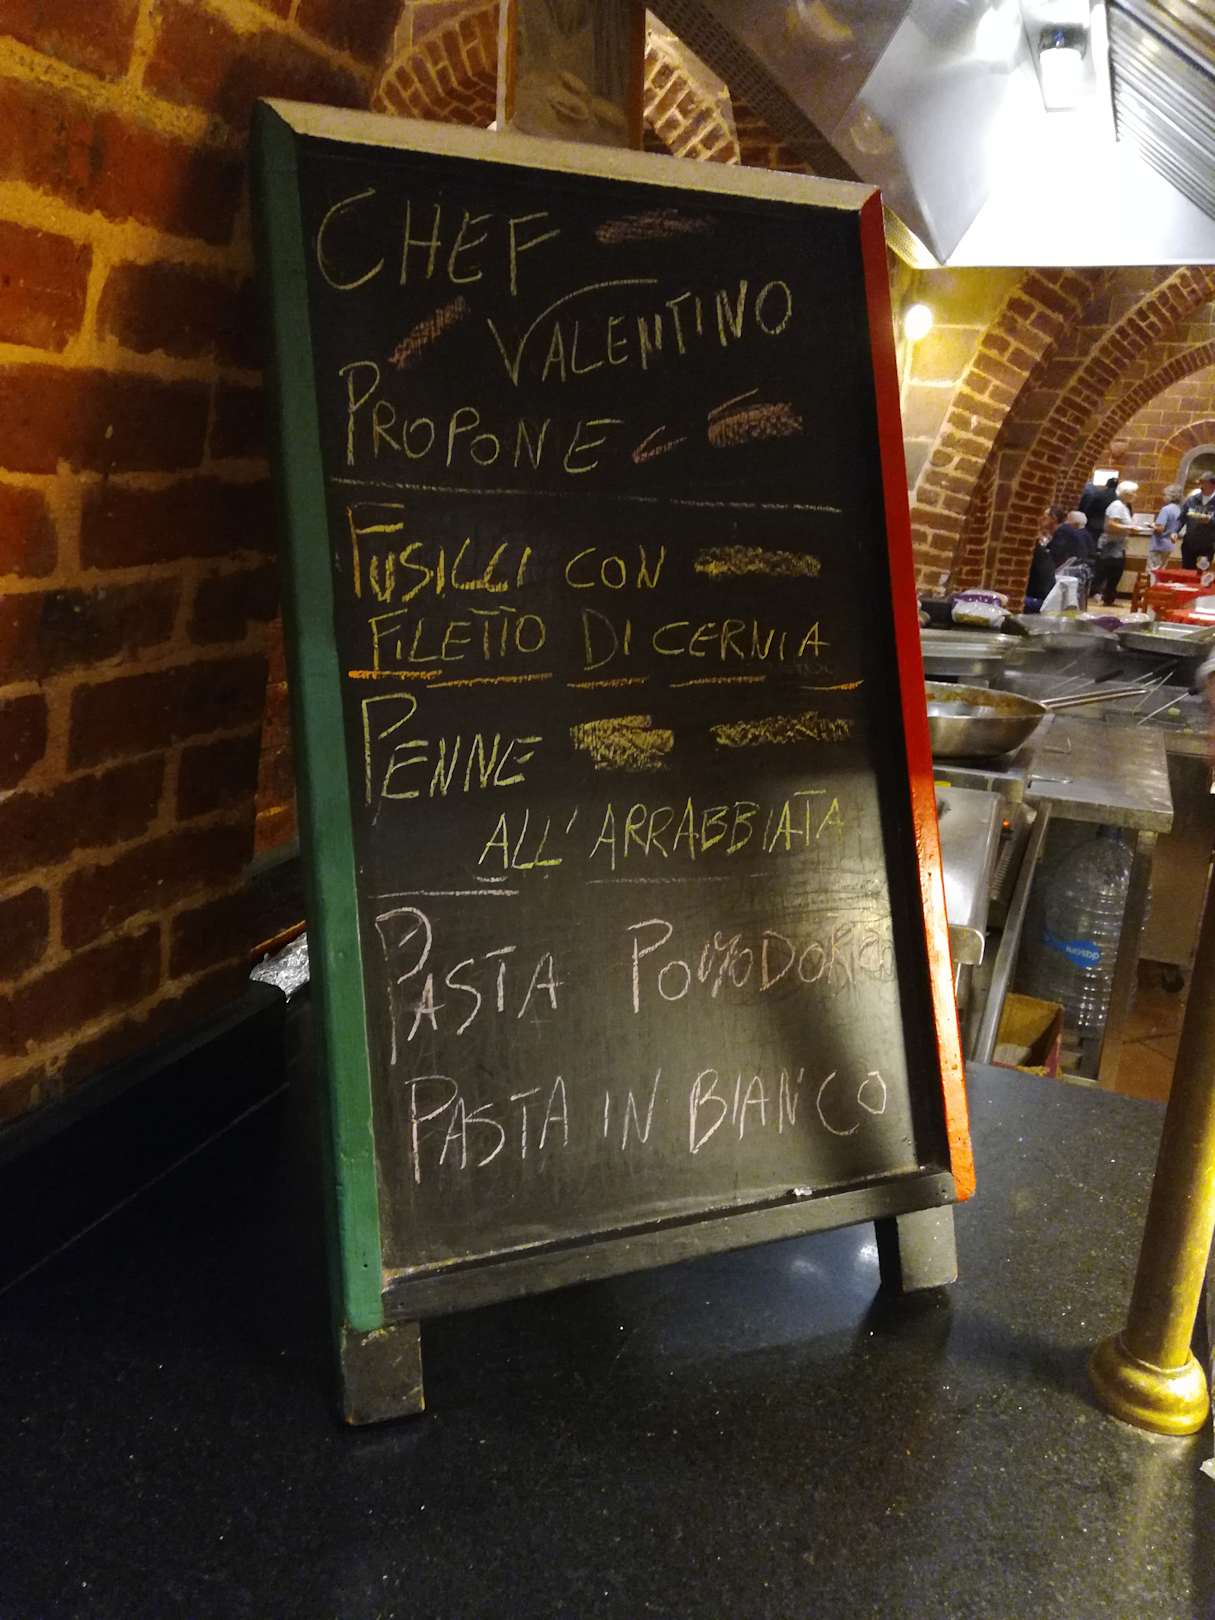 CHEF
VALENTINO
PROPONE
FUSILLI CON
FILETTO DI CERNIA
PENNE
ALL'ARRABBIATA
PASTA POMODORO
PASTA IN BIANCO